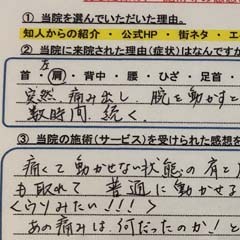 ① 当院を選んでいただいた理由。
知人からの紹介 ・ 公式HP ・ 街ネタ ・ エ
② 当院に来院された理由(症状)はなんですか
左
首 ・ 肩 ・ 背中 ・ 腰 ・ ひざ ・ 足首 ・
突然 痛み出し. 腕を動かすと
数時間. 続く.
③ 当院の施術(サービス)を受けられた感想を
痛くて 動かせない状態の肩と
も取れて 普通に動かせる
<ウソみたい!!!>
あの痛みは. 何だったのか! と